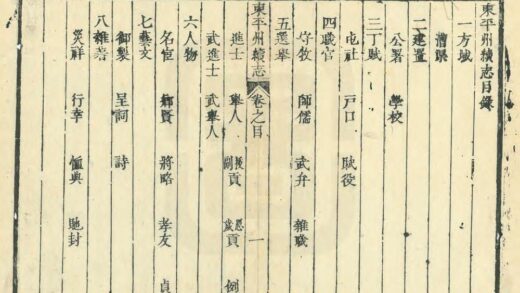 東平州續志目錄
一方域
漕渠
二建置
公署 學校
三丁賦
屯社 戶口 賦役
四職官
守牧 師儒 武弁 雜職
五選舉
東平州續志 卷之目 一
進士 舉人 拔副貢 恩歲貢 例
武進士 武舉人
六人物
名宦 鄉賢 將略 孝友 貞
七藝文
御製 呈詞 詩
八雜著
災祥 行幸 恤典 貤封